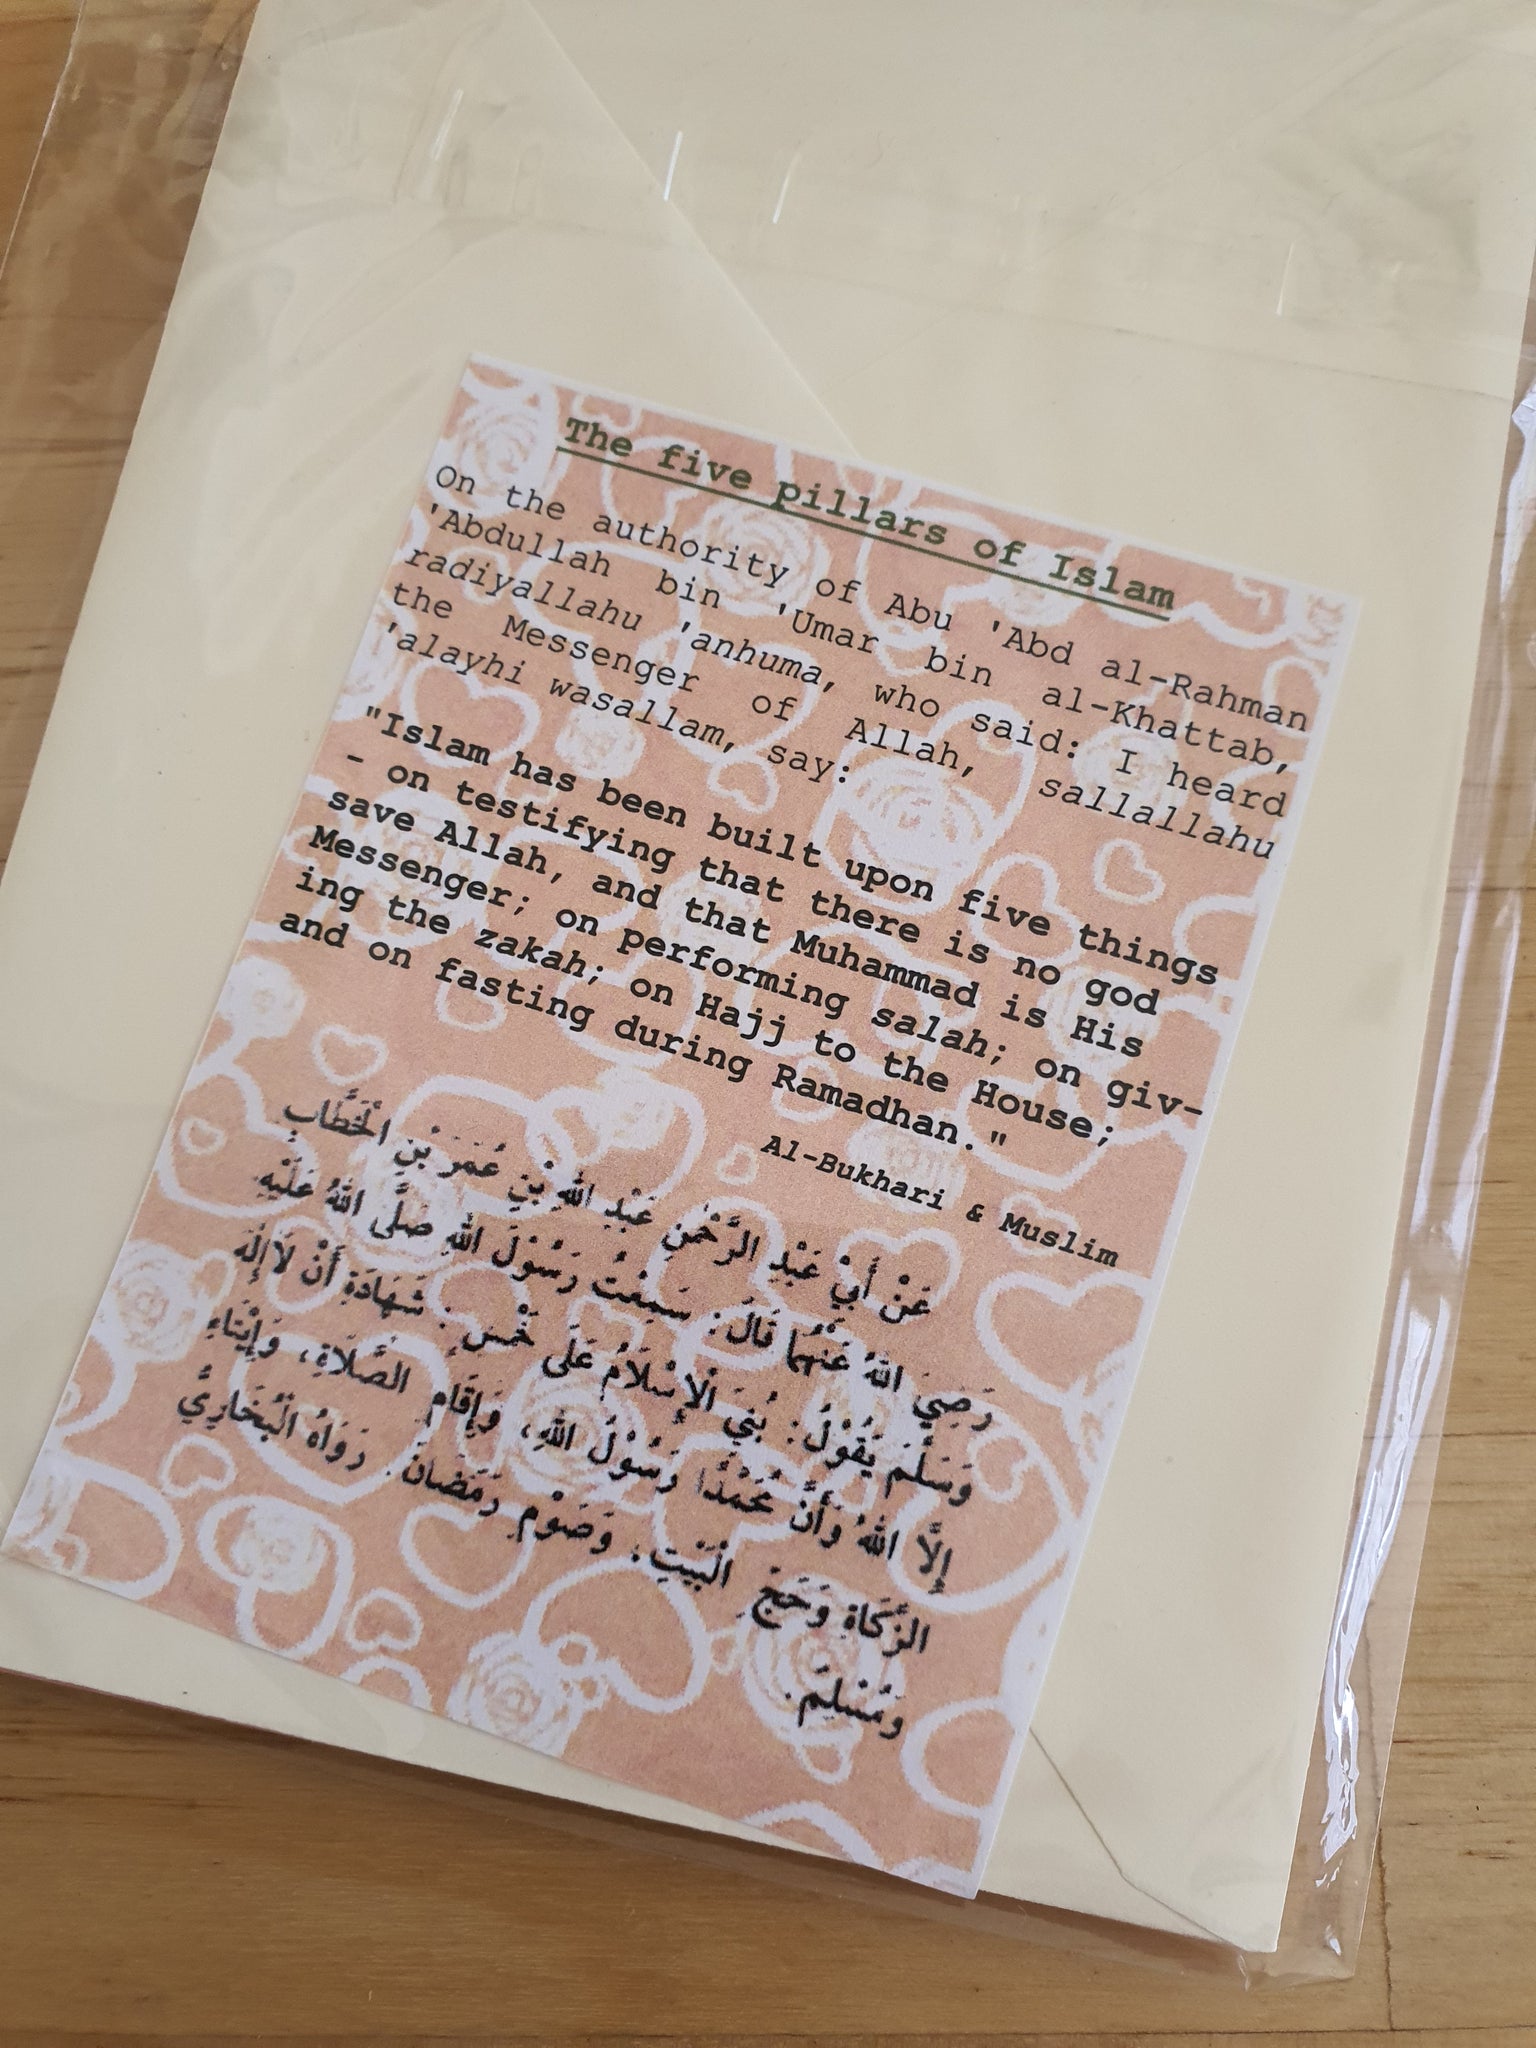 The five pillars of Islam
On the authority of Abu 'Abd al-Rahman
'Abdullah bin 'Umar bin al-Khattab,
radiyallahu 'anhuma, who said: I heard
the Messenger of Allah, sallallahu
'alayhi wasallam, say:
"Islam has been built upon five things
- on testifying that there is no god
save Allah, and that Muhammad is His
Messenger; on performing salah; on giv-
ing the zakah; on Hajj to the House;
and on fasting during Ramadhan."
Al-Bukhari & Muslim
عَنْ أَبِيْ عَبْدِ الرَّحْمٰنِ عَبْدِ اللهِ بْنِ عُمَرَ بْنِ الْخَطَّابِ
رَضِيَ اللهُ عَنْهُمَا قَالَ: سَمِعْتُ رَسُوْلَ اللهِ صَلَّى اللهُ عَلَيْهِ
وَسَلَّمَ يَقُوْلُ: بُنِيَ الْإِسْلَامُ عَلَى خَمْسٍ: شَهَادَةِ أَنْ لَا إِلٰهَ
إِلَّا اللهُ وَأَنَّ مُحَمَّدًا رَسُوْلُ اللهِ، وَإِقَامِ الصَّلَاةِ، وَإِيْتَاءِ
الزَّكَاةِ وَحَجِّ الْبَيْتِ، وَصَوْمِ رَمَضَانَ. رَوَاهُ الْبُخَارِيُّ
وَمُسْلِمٌ.